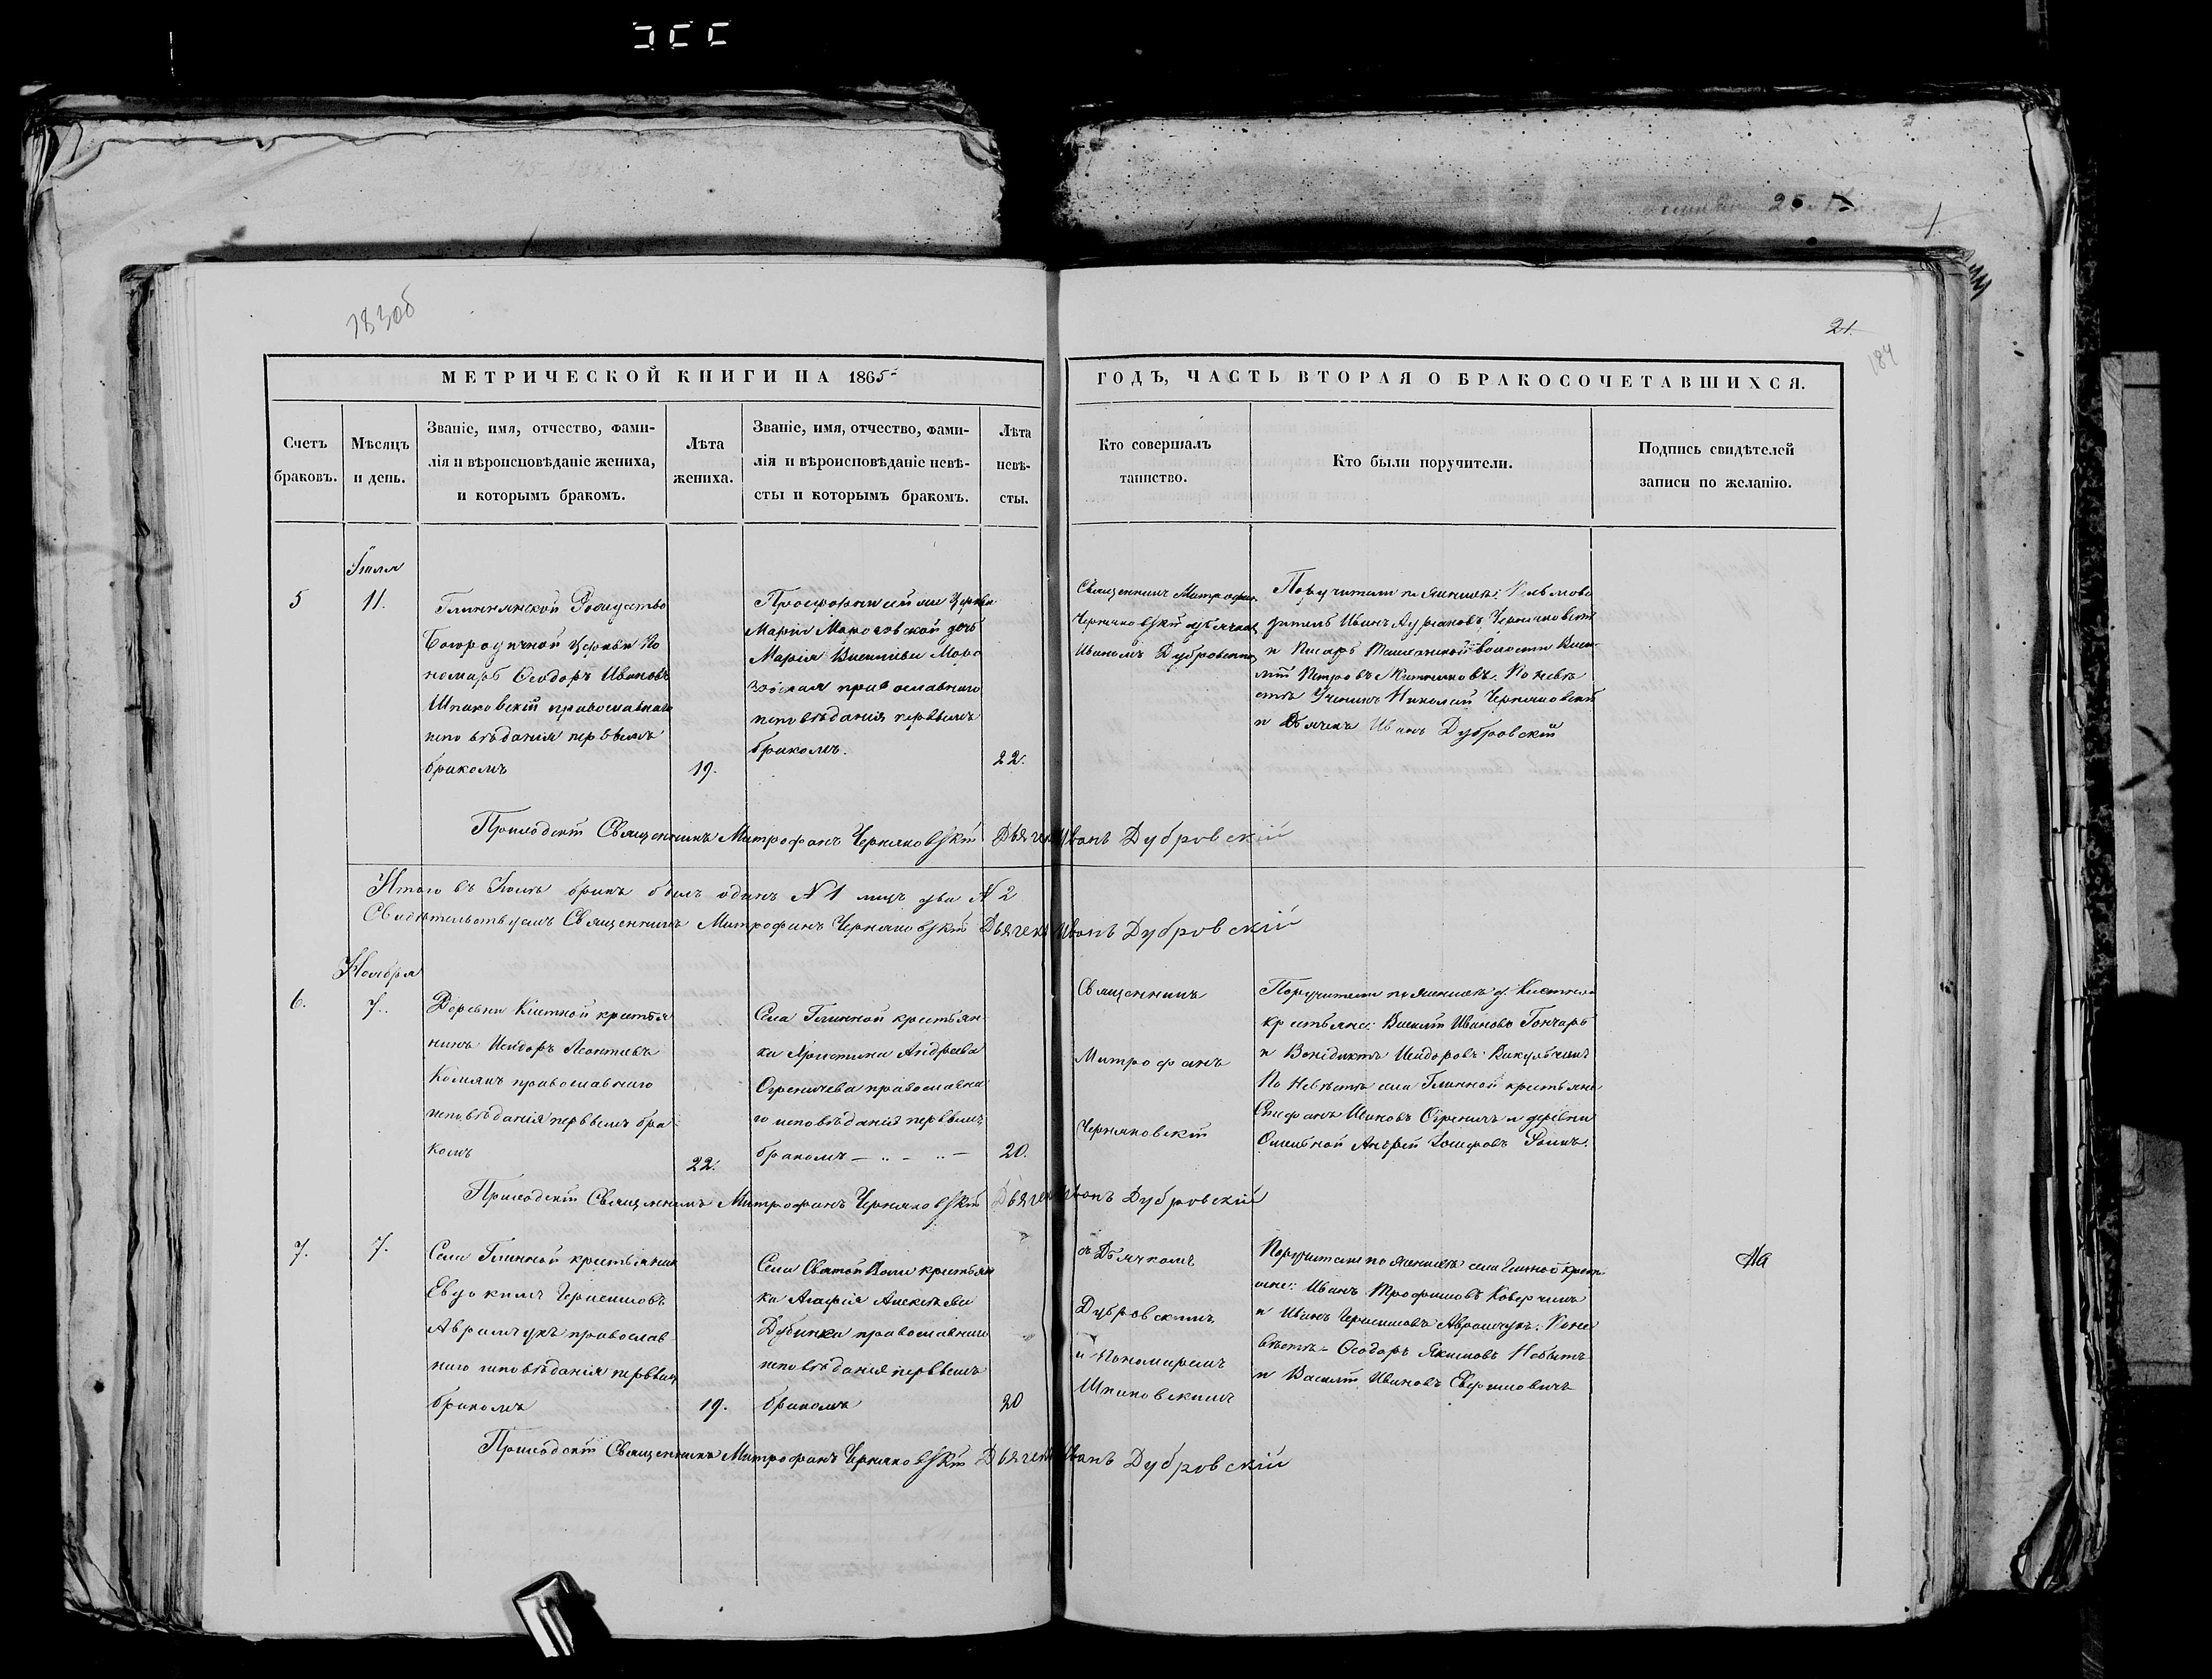 183об
21.
184
МЕТРИЧЕСКОЙ КНИГИ НА 1865
ГОДЪ, ЧАСТЬ ВТОРАЯ О БРАКОСОЧЕТАВШИХСЯ.
Счетъ
браковъ.
Мѣсяцъ
и день.
Званіе, имя, отчество, фами-
лія и вѣроисповѣданіе жениха,
и которымъ бракомъ.
Лѣта
жениха.
Званіе, имя, отчество, фами-
лія и вѣроисповѣданіе невѣ-
сты и которымъ бракомъ.
Лѣта
невѣ-
сты.
Кто совершалъ
таинство.
Кто были поручители.
Подпись свидѣтелей
записи по желанію.
Іюля
5
11.
Глиннянской Рождество
Богородичной Церкви По
номарь Ѳеодоръ Ивановъ
Шпаковскій православнаго
исповѣданія первымъ
бракомъ
19.
Церкви
Маріи Морозовской дочь
Марія
православнаго
исповѣданія первымъ
бракомъ.
22.
Священникъ Митрофанъ
Черняковскій съ дьячкомъ
Иваномъ Дубровскимъ
Поручители по женихѣ:
Иванъ Черняковскій
и Писарь волости Васи
лій Петровъ По невѣ
стѣ Ученикъ Николай Черняковскій
и Дьячекъ Иванъ Дубровскій
Приходскій Священникъ Митрофанъ Черняковскій Дьячекъ Иванъ Дубровскій
Итого въ Іюлѣ бракъ былъ одинъ № 1 лицъ два № 2
Свидѣтельствуемъ Священникъ Митрофанъ Черняковскій Дьячекъ Иванъ Дубровскій
Ноября
6.
7.
Деревни крестья
нинъ Исидоръ Леонтіевъ
православнаго
исповѣданія первымъ бра
комъ
22.
Села Глинной крестьян
ка Христина Андреева
Огреничева православна
го исповѣданія первымъ
бракомъ
20.
Священникъ
Митрофанъ
Черняковскій
Поручители по женихѣ д.
крестьяне: Василій Ивановъ Гончаръ
и Венедиктъ Исидоровъ
По невѣстѣ села Глинной крестьяне
Стефанъ Ивановъ Огреничъ и деревни
Андрей Іосифовъ
Приходскій Священникъ Митрофанъ Черняковскій Дьячекъ Иванъ Дубровскій
7.
7.
Села Глинной крестьянинъ
Евдокимъ Герасимовъ
Аврамчукъ православ
наго исповѣданія первымъ
бракомъ
19.
Села Святой Воли крестьян
ка Агафія Алексѣева
Дубинка православнаго
исповѣданія первымъ
бракомъ
20
съ Дьячкомъ
Дубровскимъ
и Пономаремъ
Шпаковскимъ
Поручители по женихѣ села Глинной крестьяне: Иванъ Трофимовъ
и Иванъ Герасимовъ Аврамчукъ: По не
вѣстѣ Ѳеодоръ Якимовъ
и Василій Ивановъ
Приходскій Священникъ Митрофанъ Черняковскій Дьячекъ Иванъ Дубровскій